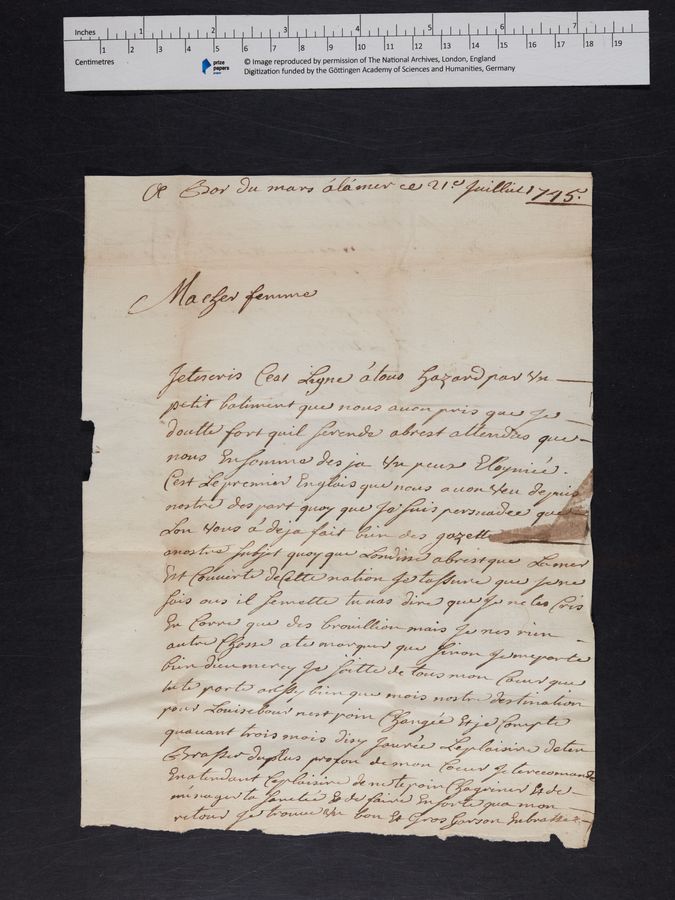 Inches 1 2 3 4 5 6 7
1 2 3 4 5 6 7 8 9 10 11 12 13 14 15 16 17 18 19
Centimetres
prize papers
© Image reproduced by permission of The National Archives, London, England
Digitization funded by the Göttingen Academy of Sciences and Humanities, Germany
A Bor du mars álámer ce 21e Juillie 1745.
Ma cher femme
Jetescris Cest Ligne átous hazard par Un
petit batiment que nous avon pris que Je
doutte fort quil serende abrest attendus que
nous En somme des ja Un peux Eloynié.
Cest Le premier Englois que nous avon Veu depuis
nostre despart quoy que Jé suis persuadée que
Lon Vous á déja fait bien des gazette
anostre subjet quoy que Londise abrest que Lamer
Est Couverte de Cette nation Je tassure que Je ne
sois ous il semette tu vas dire que Je ne tes Cris
En Corre que des brouillion mais Je nes rien
autre Chosse a te marquer que sinon Je me porte
bien dieu mercy Je soitte de tous mon Coeur que
tu te porte aussy bien que mois nostre destination
pour Louisebour nest poin Changée Et je Compte
quavant trois mois disy Jaurée Le plaisire de ten
Brasser du plus profon de mon Coeur Je te recomande
En atendant Le plaisire de ne te poin Chagriner Et de
ménager ta santée Et de faire En sorte qua mon
retour Je trouve Un bon Et Gros Garson Enbrasse